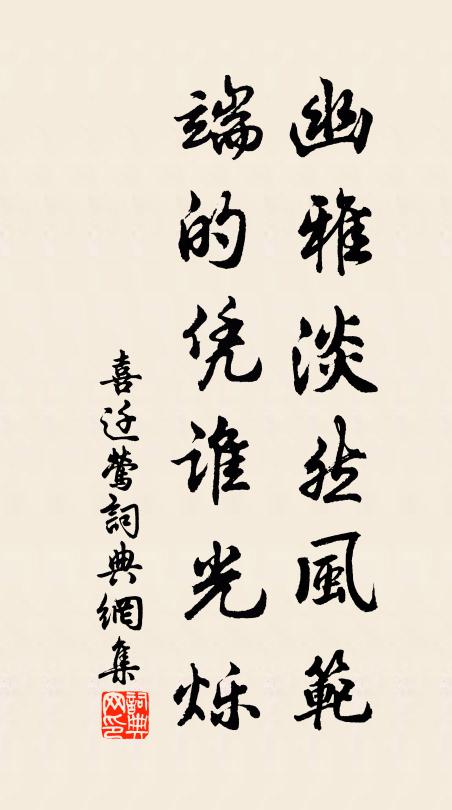 幽雅淡然風範
端的凭誰光烁
喜迁鶯詞典網集
詞典网印